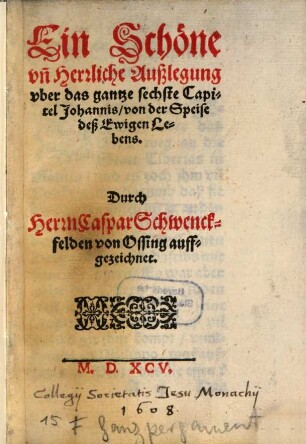 Ein Schöne
vñ Herrliche Außlegung
vber das gantze sechste Capi-
tel Johannis/von der Speise
deß Ewigen Le-
bens.
Durch
Herrn Caspar Schwenck-
felden von Ossing auff-
gezeichnet.
M. D. XCV.
Collegij Societatis Jesu Monachij
1608.
15 F Ganzpergament